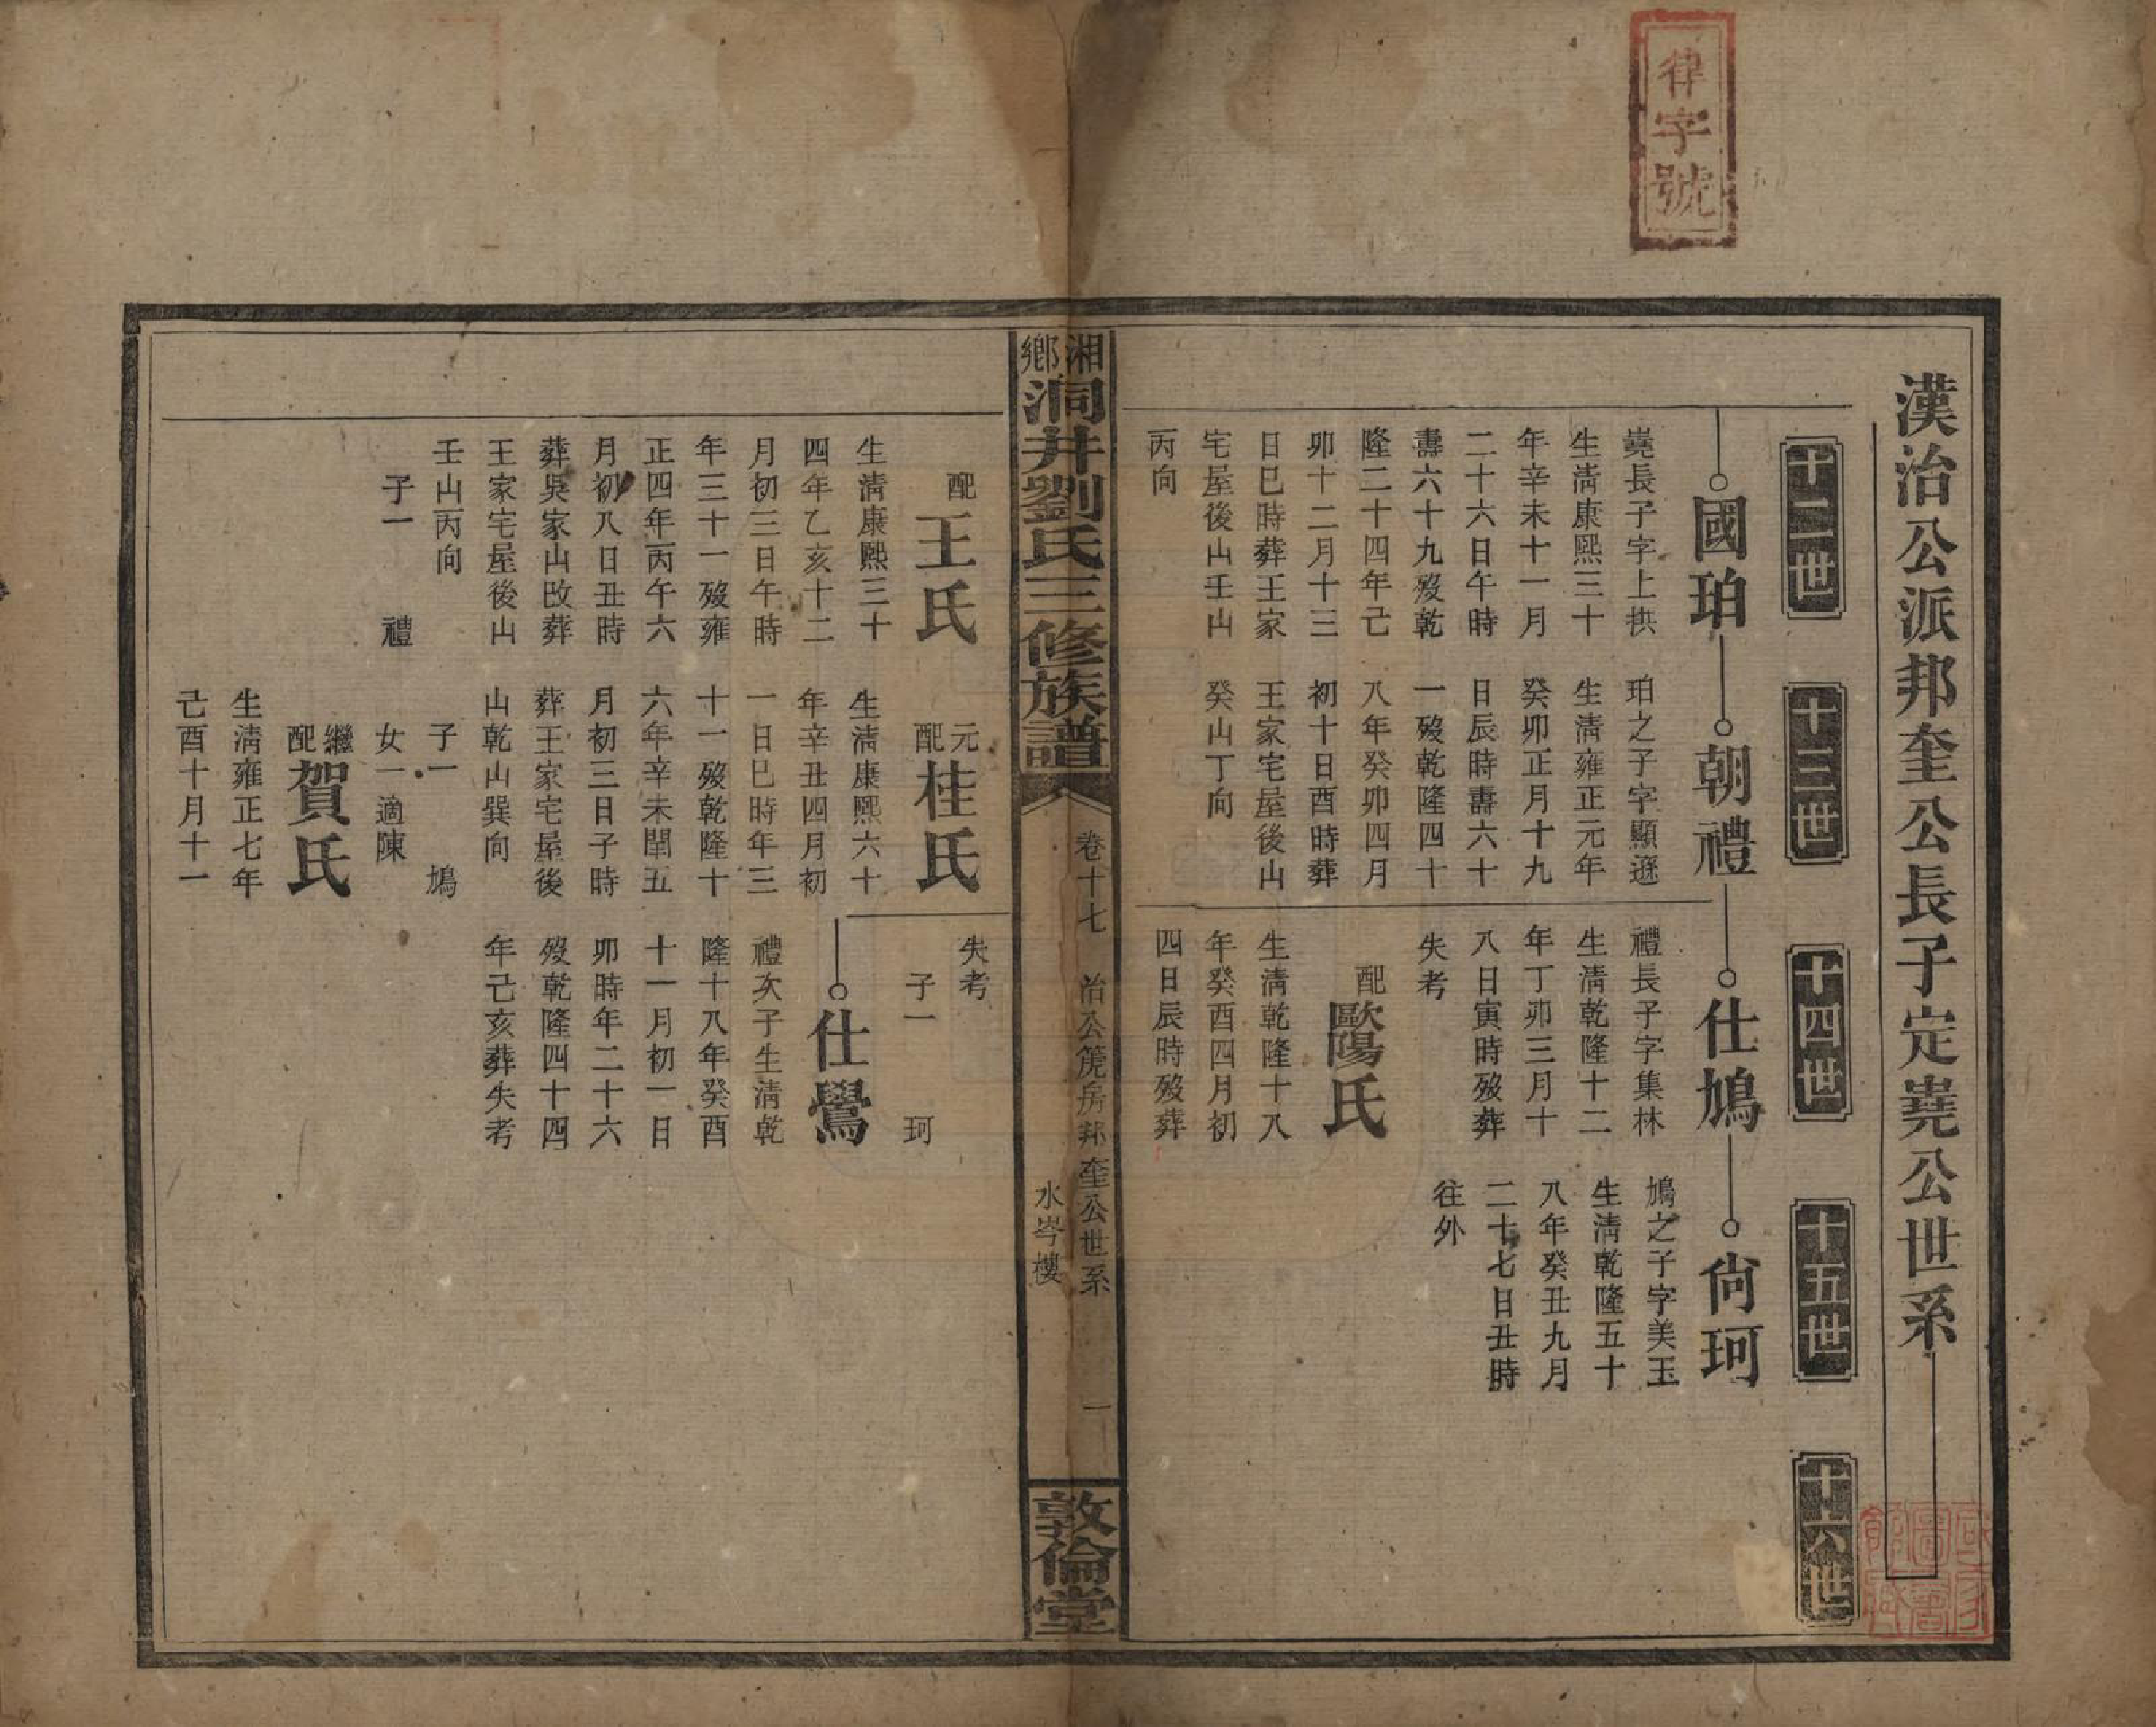 律字號
漢治公派邦奎公長子定堯公世系
十二世
十三世
十四世
十五世
十六世
國珀
堯長子字上拱
生清康熙三十
年辛未十一月
二十六日午時
壽六十九歿乾
隆二十四年己
卯十二月十三
日巳時葬王家
宅屋後山壬山
丙向
朝禮
珀之子字顯遜
生清雍正元年
癸卯正月十九
日辰時壽六十
一歿乾隆四十
八年癸卯四月
初十日酉時葬
王家宅屋後山
癸山丁向
仕鳩
禮長子字集林
生清乾隆十二
年丁卯三月十
八日寅時歿葬
失考
配歐陽氏
生清乾隆十八
年癸酉四月初
四日辰時歿葬
尙珂
鳩之子字美玉
生清乾隆五十
八年癸丑九月
二十七日丑時
往外
湘鄉洞井劉氏三修族譜
卷十七 治公箎房邦奎公世系
水岑樓
一
敦倫堂
配王氏
生清康熙三十
四年乙亥十二
月初三日午時
年三十一歿雍
正四年丙午六
月初八日丑時
葬吳家山改葬
王家宅屋後山
壬山丙向
子一 禮
元配桂氏
生清康熙六十
年辛丑四月初
一日巳時年三
十一歿乾隆十
六年辛未閏五
月初三日子時
葬王家宅屋後
山乾山巽向
子一 鳩
女一適陳
繼配賀氏
生清雍正七年
己酉十月十一
失考
子一 珂
仕鸎
禮次子生清乾
隆十八年癸酉
十一月初一日
卯時年二十六
歿乾隆四十四
年己亥葬失考